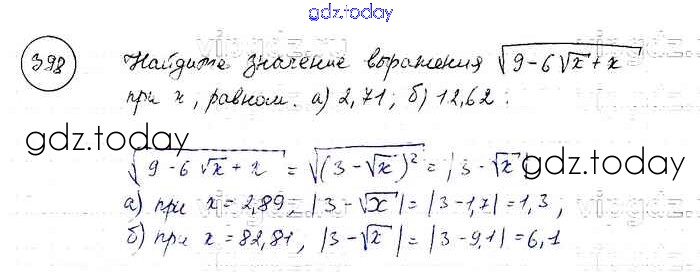 gdz.today
398 Найдите значение выражения √(9-6√x+x)
при x, равном: а) 2,71; б) 12,62:
gdz.today
√(9-6√x+x) = √((3-√x)²) = |3-√x| gdz.today
а) при x=2,89, |3-√x|=|3-1,7|=1,3;
б) при x=82,81, |3-√x|=|3-9,1|=6,1